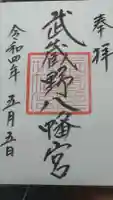 奉拝
武蔵野八幡宮
令和四年
五月五日